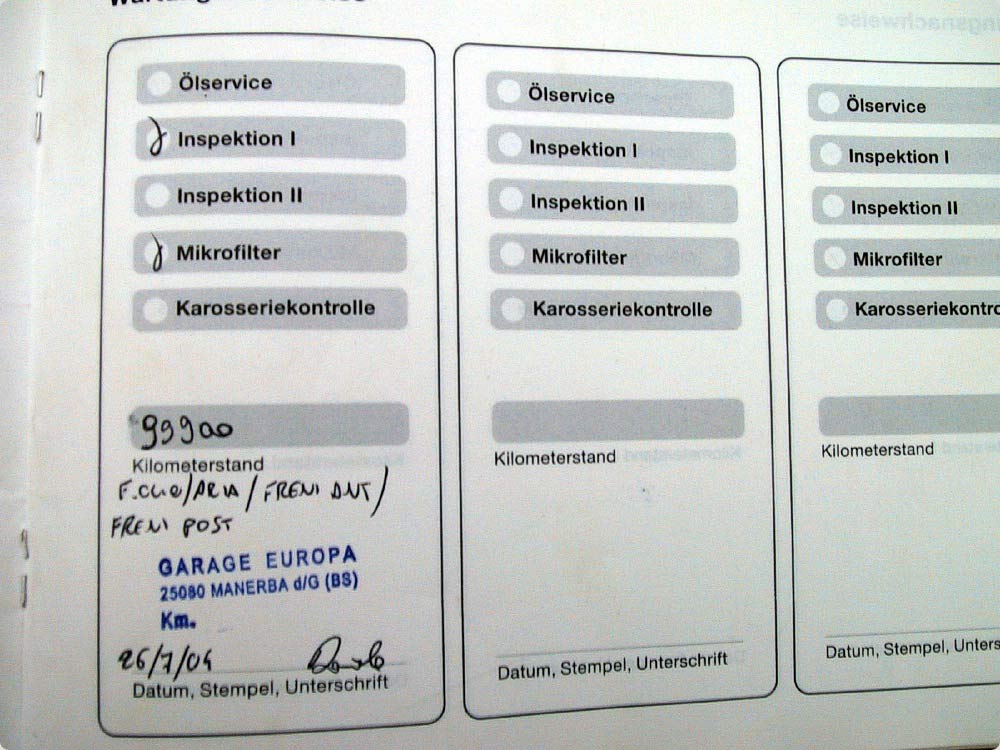 Ölservice
Inspektion I
Inspektion II
Mikrofilter
Karosseriekontrolle
99900
Kilometerstand
F. OLIO/ARIA/FRENI ANT/
FRENI POST
GARAGE EUROPA
25080 MANERBA d/G (BS)
Km.
26/7/04
Datum, Stempel, Unterschrift
Ölservice
Inspektion I
Inspektion II
Mikrofilter
Karosseriekontrolle
Kilometerstand
Datum, Stempel, Unterschrift
Ölservice
Inspektion I
Inspektion II
Mikrofilter
Karosseriekontro
Kilometerstand
Datum, Stempel, Unters